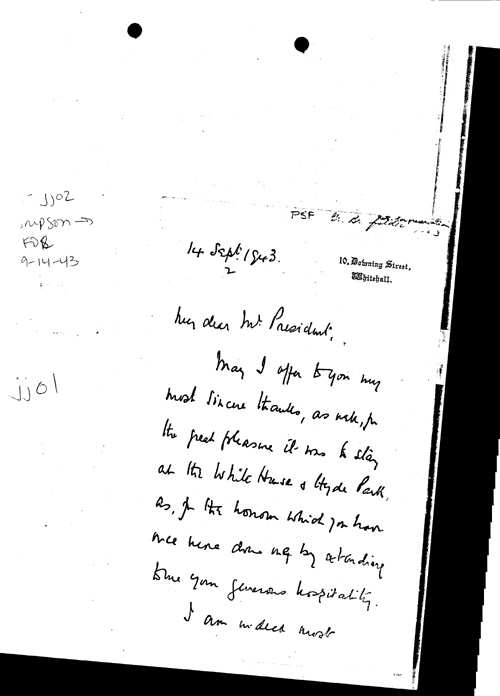 jj02
FDR
9-14-43
PSF
14 Sept. 1943.
2
10, Downing Street,
Whitehall.
My dear Mr. President,
May I offer to you my
jj01
most sincere thanks, as well, for
the great pleasure it was to stay
at the White House & Hyde Park,
as, for the honour which you have
once more done me by extending
to me your generous hospitality.
I am indeed most